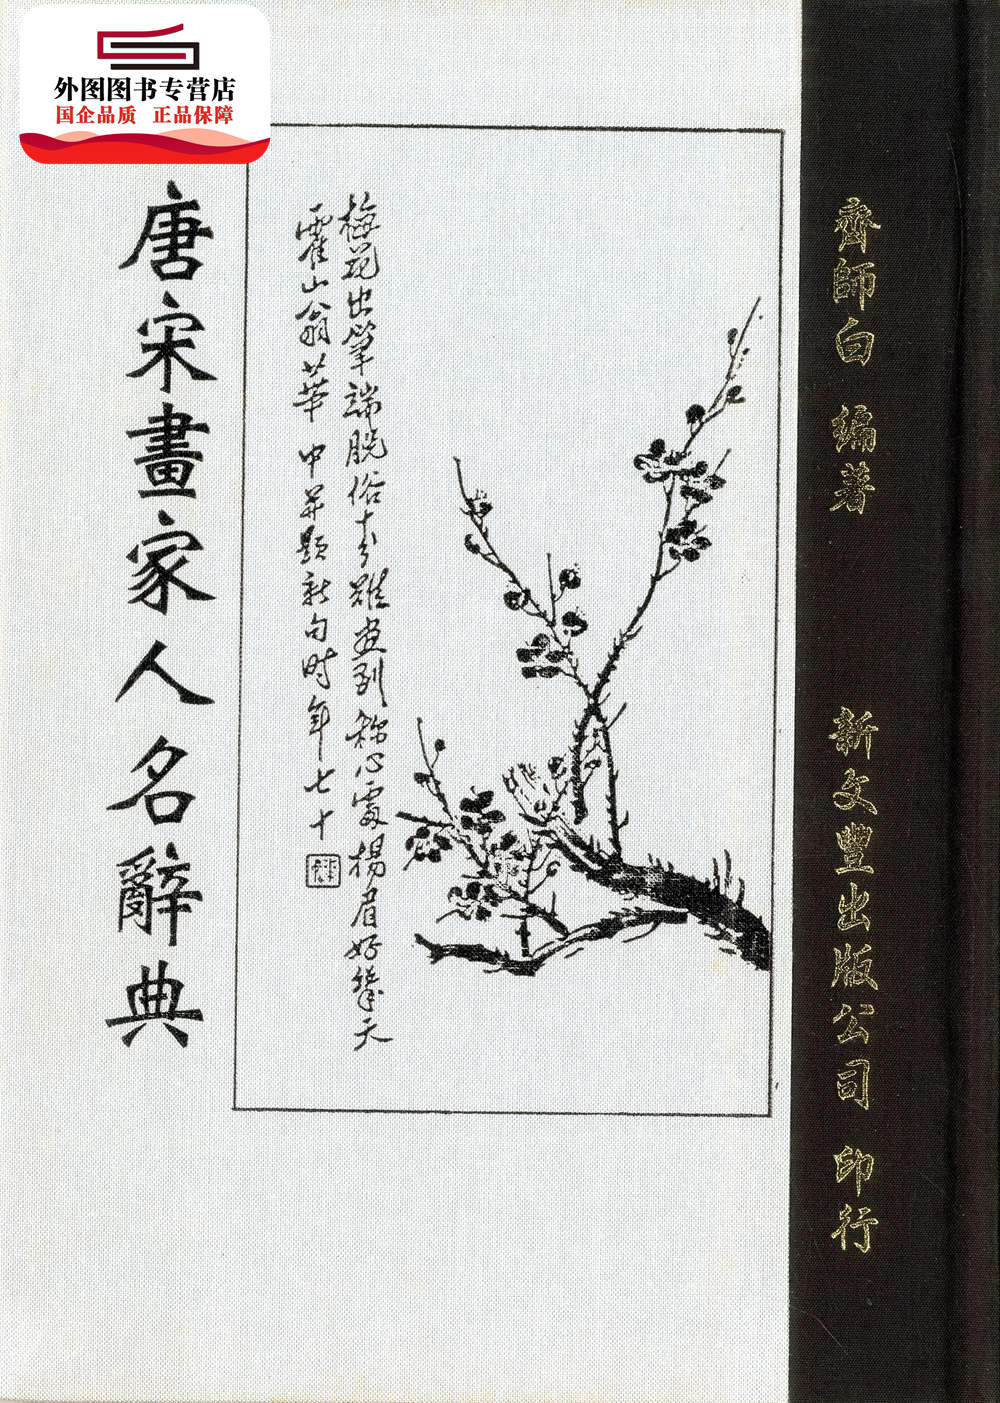 外图图书专营店
国企品质 正品保障
唐宋畫家人名辭典
梅花出筆端脱俗十分難画到称心處楊眉好天
霍山翁華中并題新句时年七十
齊師白 編著 新文豐出版公司 印行